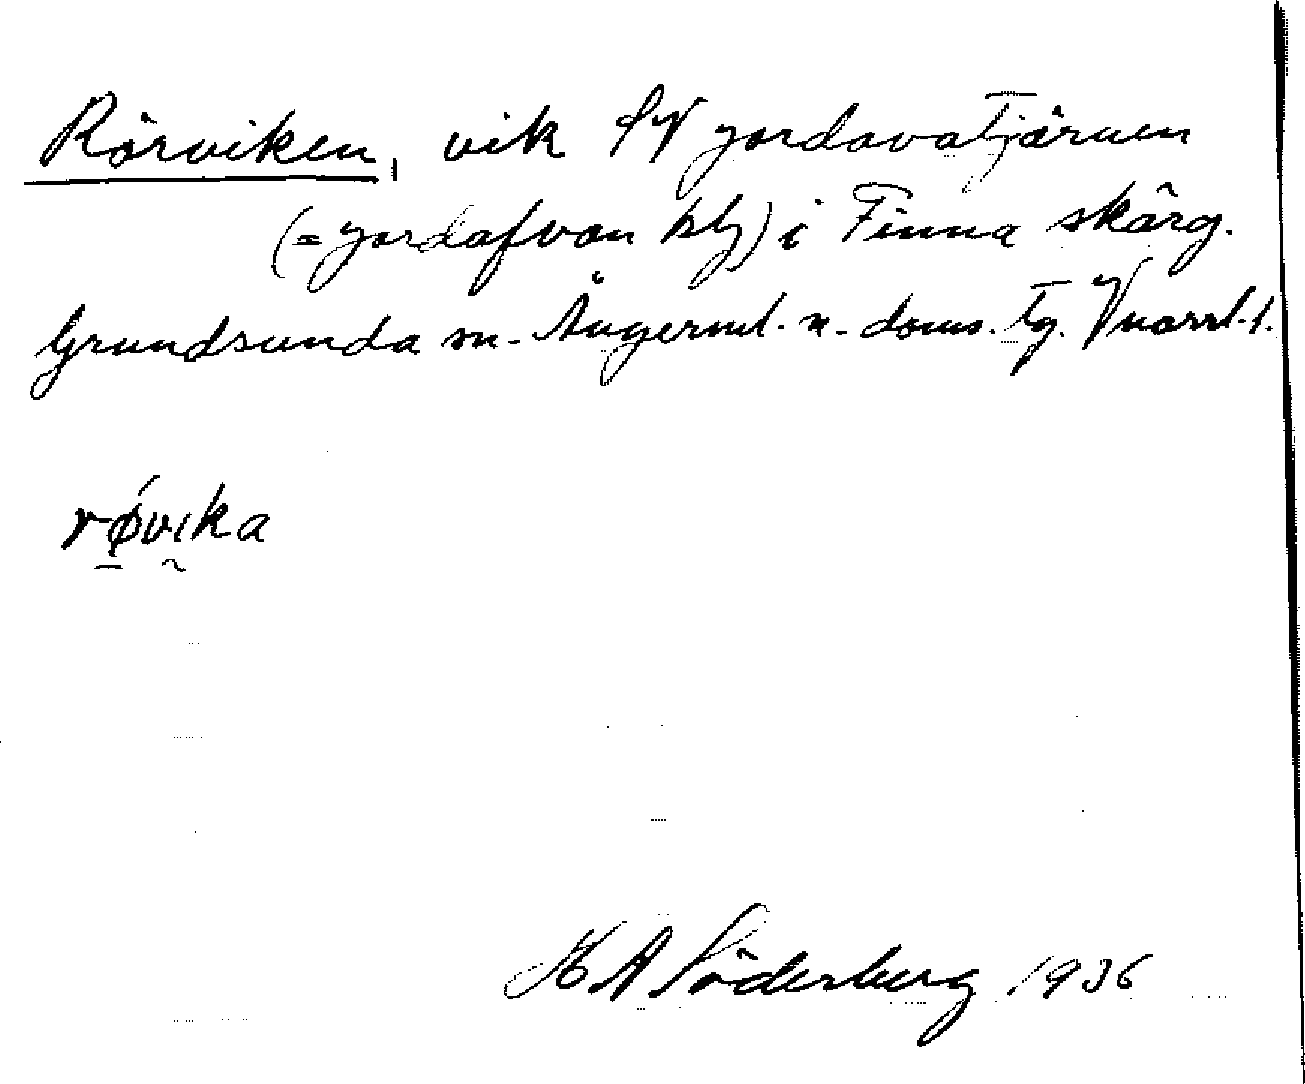 Rörviken, vik SV Jordavatjärnen
(=Jordafvan blg) i Finna skärg.
Grundsunda sn. Ångerml. n. doms. tg. Vnorrl. l.
røvika
K A Söderberg 1936